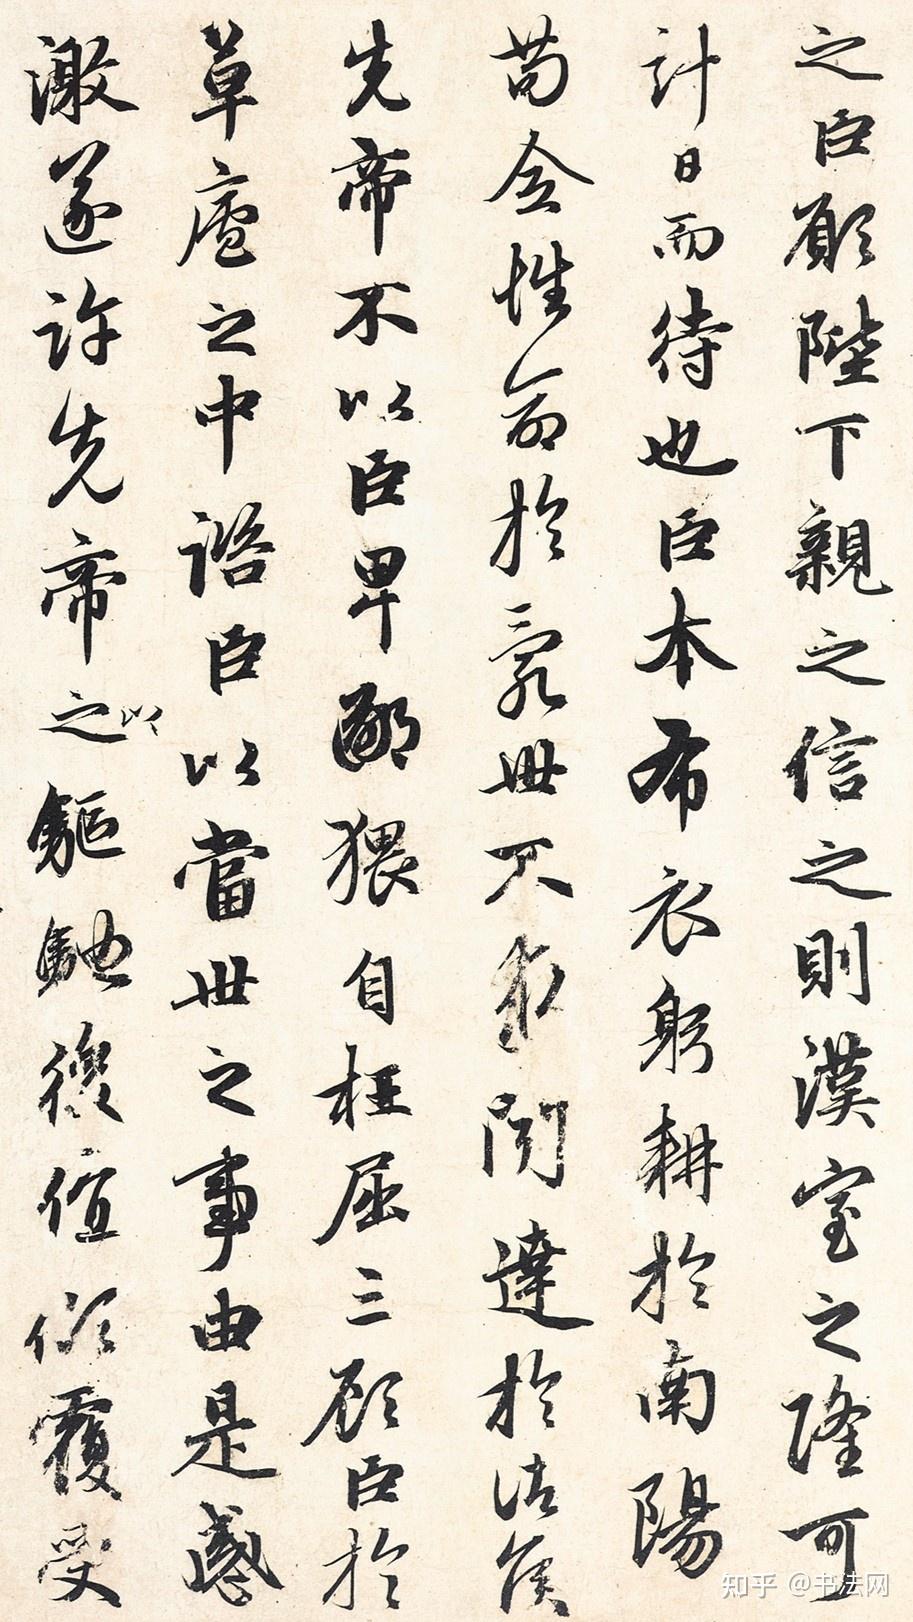 之臣願陛下親之信之則漢室之隆可
計日而待也臣本布衣躬耕於南陽
苟全性命於亂世不求聞達於諸侯
先帝不以臣卑鄙猥自枉屈三顧臣於
草廬之中諮臣以當世之事由是感
激遂許先帝之以驅馳後值傾覆受
知乎 @书法网